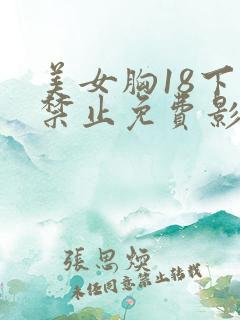 美女胸18下
禁止免費影
張思煥
未经同意禁止转载